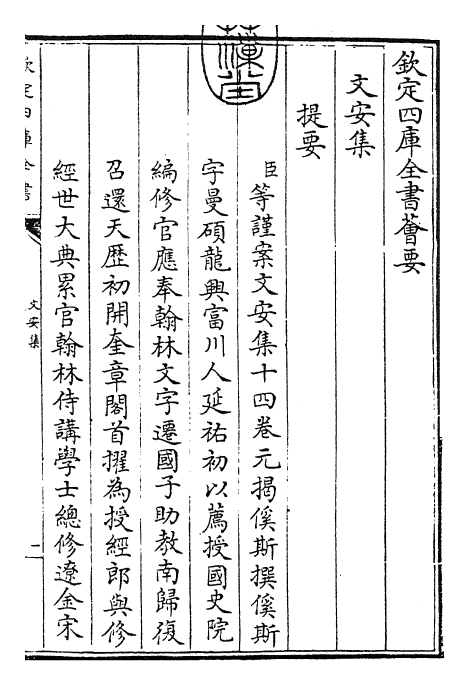 欽定四庫全書薈要
文安集
提要
臣等謹案文安集十四卷元揭傒斯撰傒斯
字曼碩龍興富川人延祐初以薦授國史院
編修官應奉翰林文字遷國子助教南歸復
召還天歴初開奎章閣首擢為授經郎與修
經世大典累官翰林侍講學士總修遼金宋
欽定四庫全書
文安集